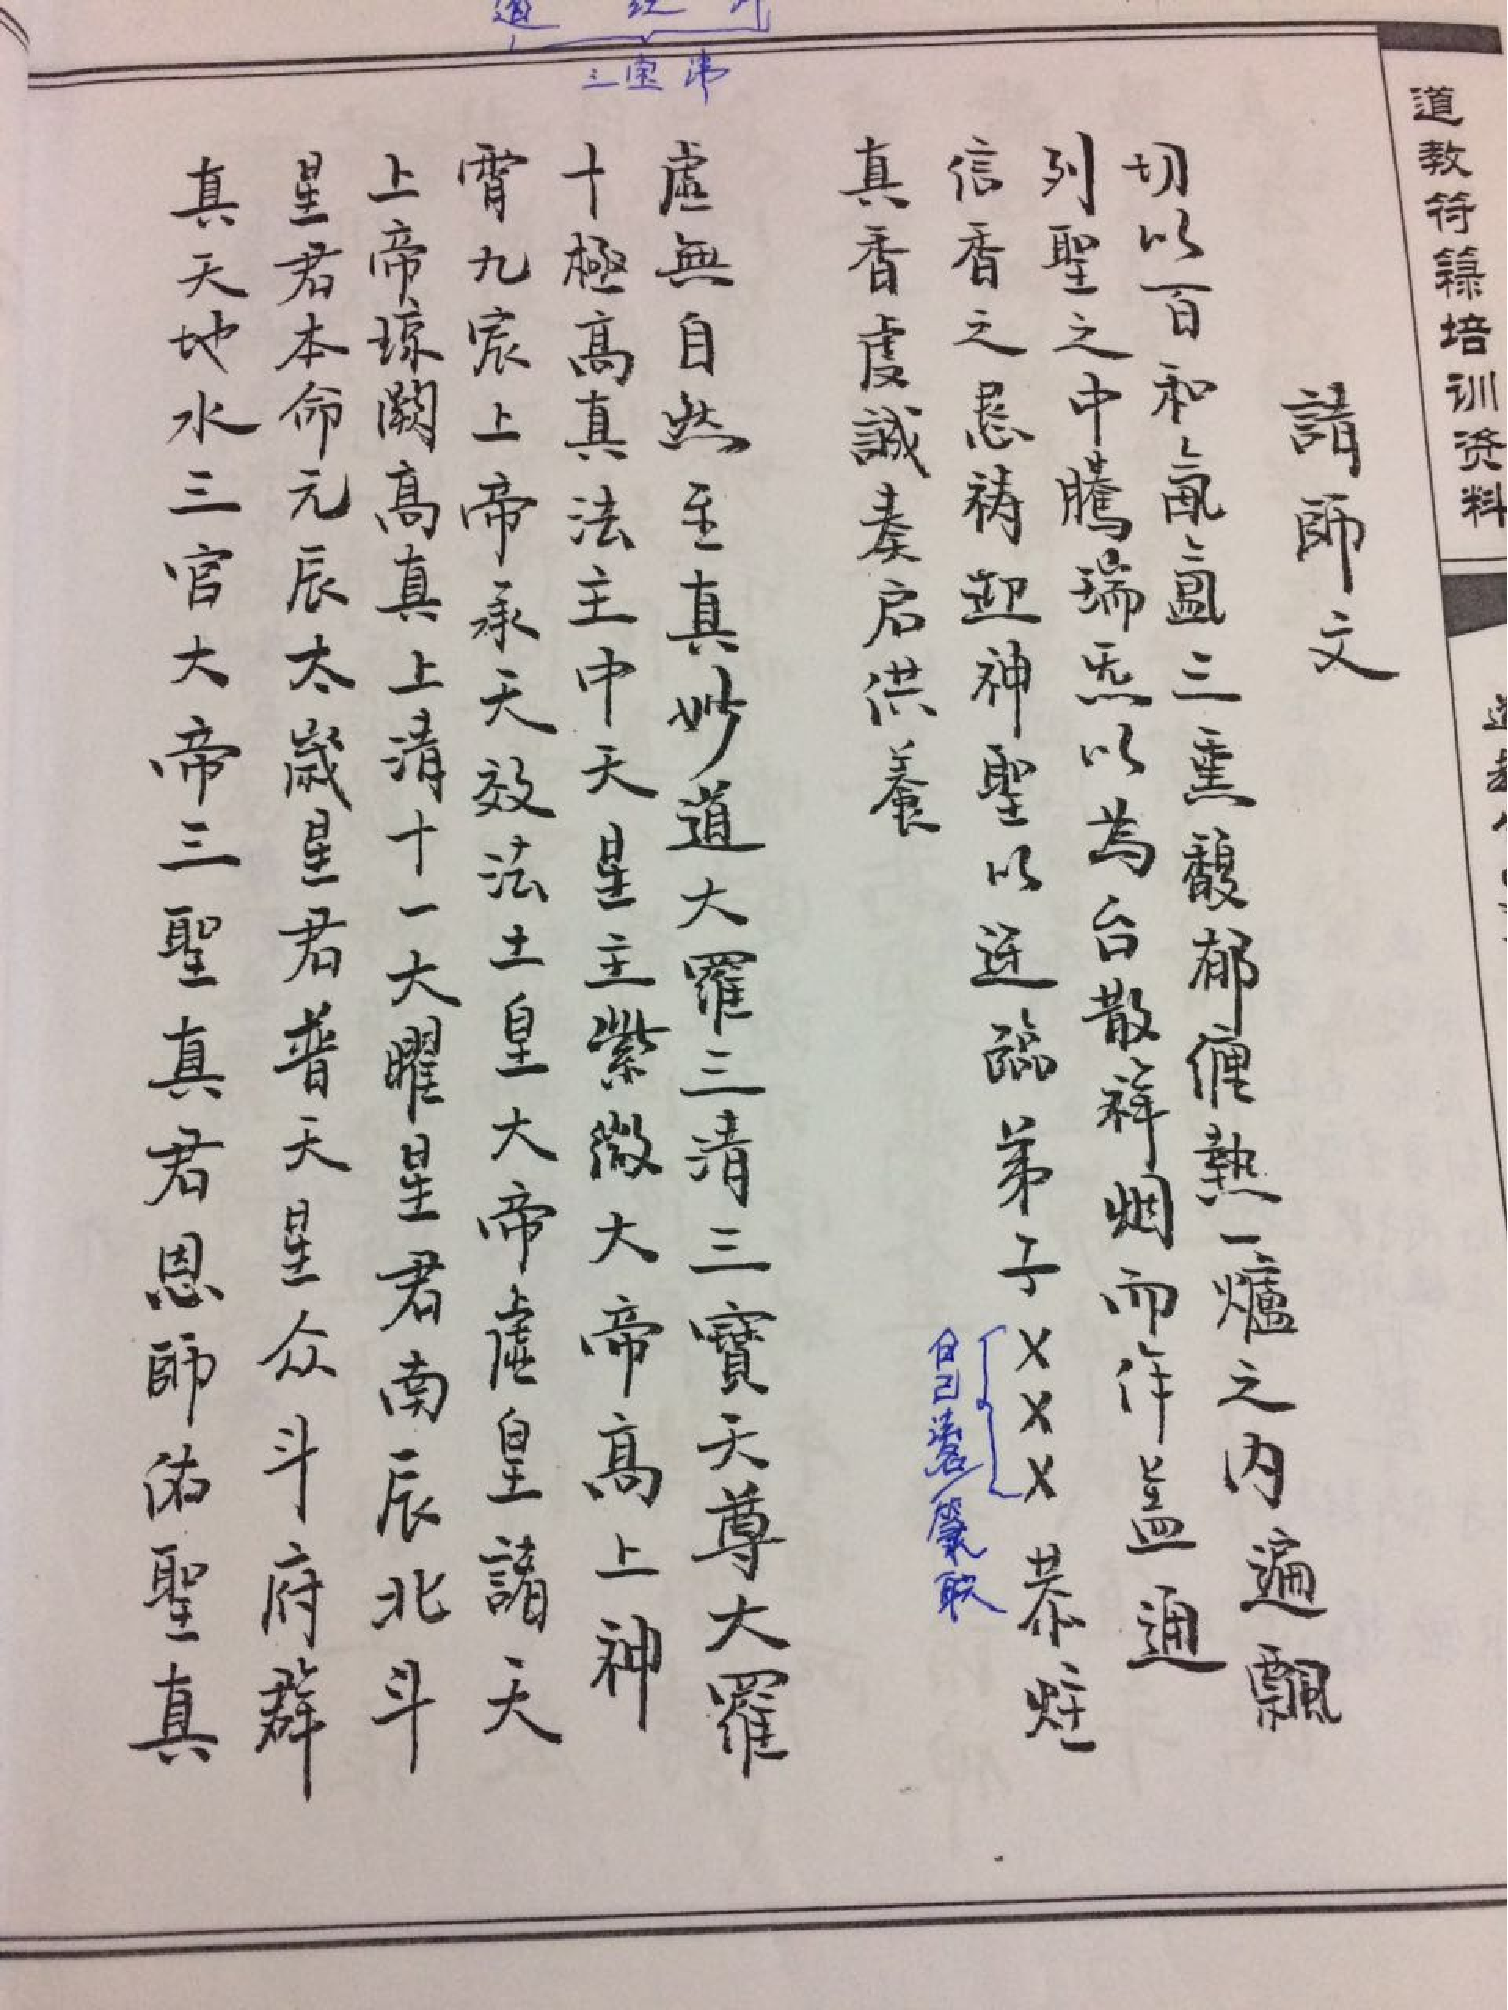 道教符籙培训资料
請師文
切以百和氤氳三熏馥郁僵熱一爐之内遍飄
列聖之中騰瑞炁以為台散祥烟而作盖通
信香之悬祷迎神聖以遥臨弟子XXX恭炷
真香虔誠奏启供養
虛無自然至真妙道大羅三清三寶天尊大羅
十極高真法主中天星主紫微大帝高上神
霄九宸上帝承天效法土皇大帝虛皇諸天
上帝琼闕高真上清十一大曜星君南辰北斗
星君本命元辰太歲星君普天星众斗府群
真天地水三官大帝三聖真君恩師佑聖真
自己法名/箓职
三宝讳